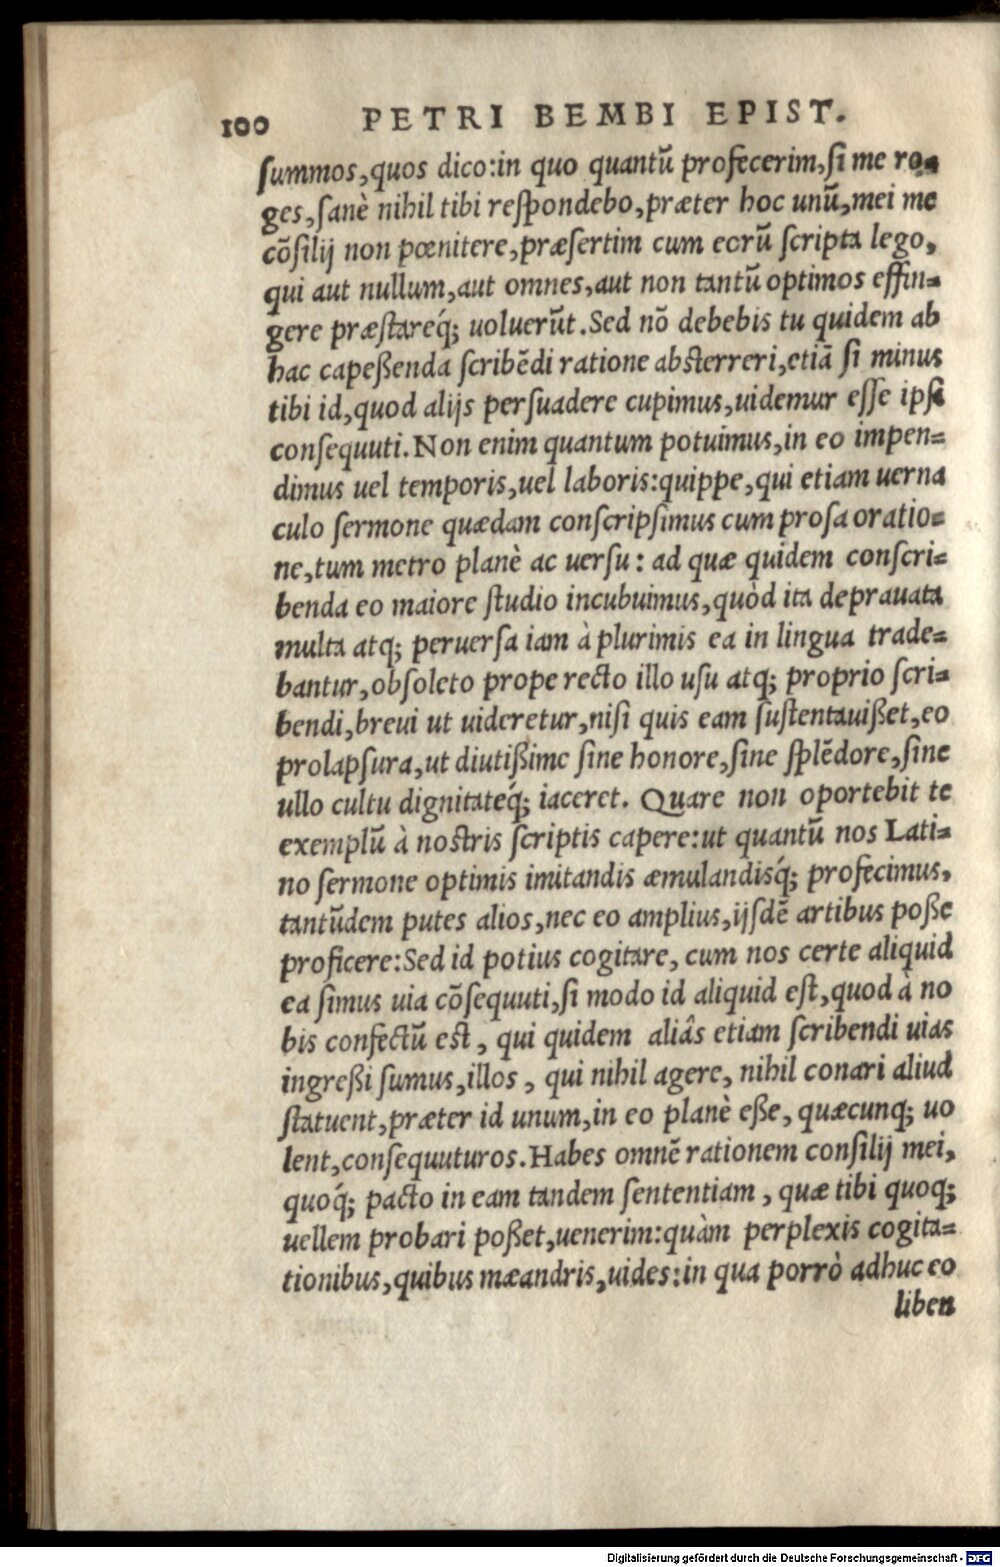 100 PETRI BEMBI EPIST.
ſummos,quos dico:in quo quantũ profecerim,ſi me ro=
ges,ſanè nihil tibi reſpondebo,præter hoc unũ,mei me
cõſilij non pœnitere,præſertim cum eorũ ſcripta lego,
qui aut nullum,aut omnes,aut non tantũ optimos effin=
gere præſtareq́; uoluerũt.Sed nõ debebis tu quidem ab
hac capeßenda ſcribẽdi ratione abſterreri,etiã ſi minus
tibi id,quod alijs perſuadere cupimus,uidemur eſſe ipſi
conſequuti.Non enim quantum potuimus,in eo impen=
dimus uel temporis,uel laboris:quippe,qui etiam uerna
culo ſermone quædam conſcripſimus cum proſa oratio=
ne,tum metro planè ac uerſu: ad quæ quidem conſcri=
benda eo maiore ſtudio incubuimus,quòd ita deprauata
multa atq; peruerſa iam à plurimis ea in lingua trade=
bantur,obſoleto prope recto illo uſu atq; proprio ſcri=
bendi,breui ut uideretur,niſi quis eam ſuſtentauißet,eo
prolapſura,ut diutißime ſine honore,ſine ſplẽdore,ſine
ullo cultu dignitateq́; iaceret. Quare non oportebit te
exemplũ à noſtris ſcriptis capere:ut quantũ nos Lati=
no ſermone optimis imitandis æmulandisq́; profecimus,
tantũdem putes alios,nec eo amplius,ijſdẽ artibus poße
proficere:Sed id potius cogitare, cum nos certe aliquid
ea ſimus uia cõſequuti,ſi modo id aliquid eſt,quod à no
bis confectũ eſt, qui quidem aliâs etiam ſcribendi uias
ingreßi ſumus,illos, qui nihil agere, nihil conari aliud
ſtatuent,præter id unum,in eo planè eße, quæcunq; uo
lent,conſequuturos.Habes omnẽ rationem conſilij mei,
quoq́; pacto in eam tandem ſententiam, quæ tibi quoq;
uellem probari poßet,uenerim:quàm perplexis cogita=
tionibus,quibus mæandris,uides:in qua porrò adhuc eo
liben
Digitalisierung gefördert durch die Deutsche Forschungsgemeinschaft - DFG